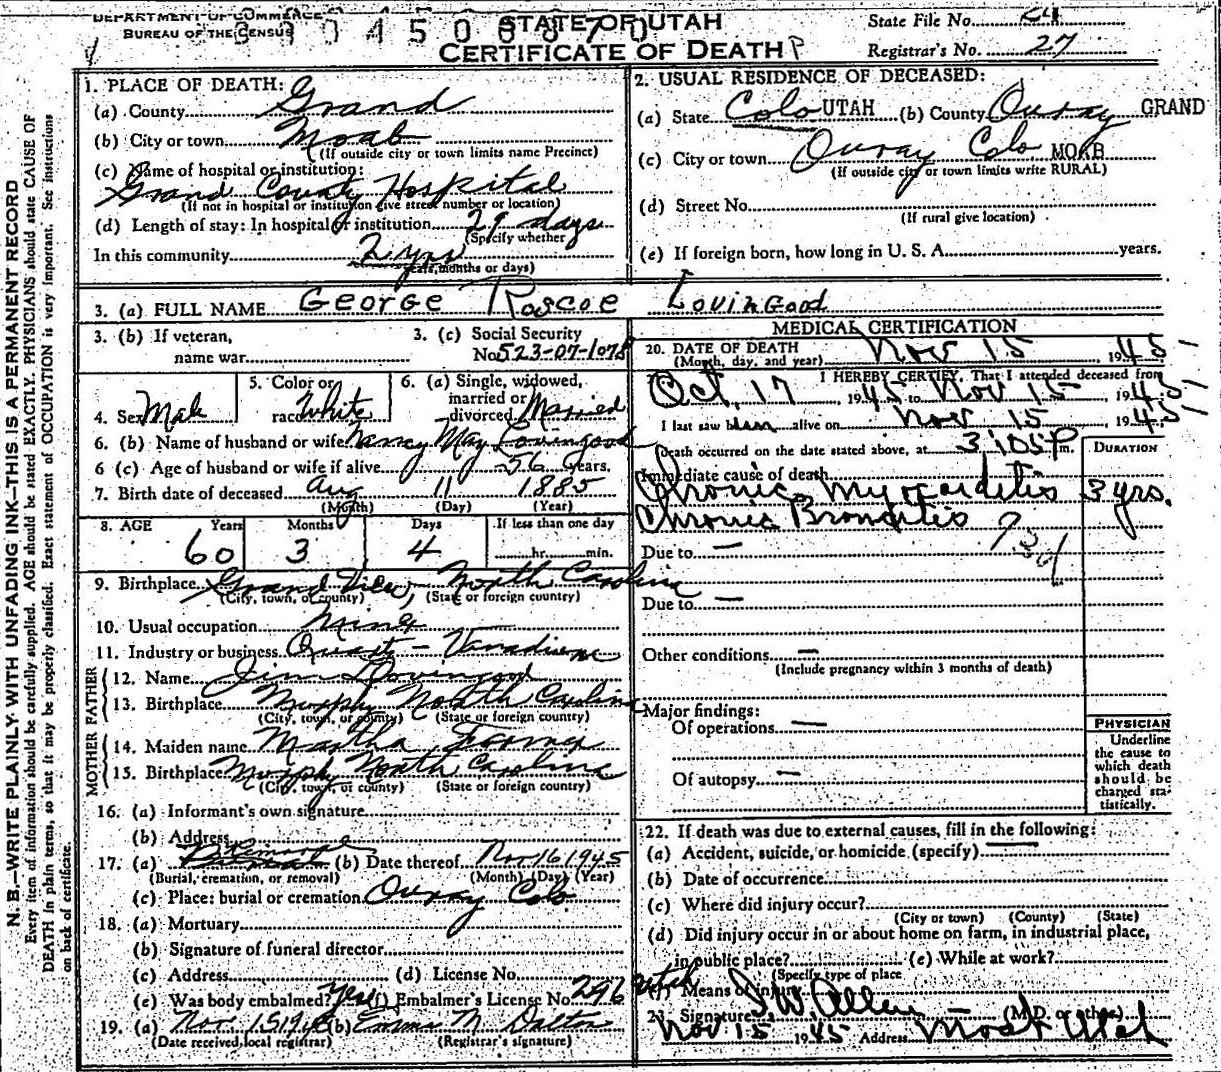 DEPARTMENT OF COMMERCE
BUREAU OF THE CENSUS
STATE OF UTAH
CERTIFICATE OF DEATH
State File No. 24
Registrar's No. 27
N. B.—WRITE PLAINLY WITH UNFADING INK—THIS IS A PERMANENT RECORD
Every item of information should be carefully supplied. AGE should be stated EXACTLY. PHYSICIANS should state CAUSE OF
DEATH in plain terms, so that it may be properly classified. Exact statement of OCCUPATION is very important. See instructions
on back of certificate.
1. PLACE OF DEATH:
(a) County Grand
(b) City or town Moab
(If outside city or town limits name Precinct)
(c) Name of hospital or institution:
Grand County Hospital
(If not in hospital or institution give street number or location)
(d) Length of stay: In hospital or institution 29 days
(Specify whether
In this community 2 yrs
years, months or days)
2. USUAL RESIDENCE OF DECEASED:
(a) State Colo UTAH (b) County Ouray GRAND
(c) City or town Ouray Colo MOAB
(If outside city or town limits write RURAL)
(d) Street No.
(If rural give location)
(e) If foreign born, how long in U. S. A. years.
3. (a) FULL NAME George Roscoe Lovingood
3. (b) If veteran,
name war
3. (c) Social Security
No. 523-07-1078
4. Sex Male
5. Color or
race White
6. (a) Single, widowed,
married or
divorced Married
6. (b) Name of husband or wife Nancy May Lovingood
6 (c) Age of husband or wife if alive 56 years.
7. Birth date of deceased Aug 11 1885
(Month) (Day) (Year)
8. AGE Years Months Days If less than one day
60 3 4 hr. min.
9. Birthplace Grand View, North Carolina
(City, town, or county) (State or foreign country)
10. Usual occupation
11. Industry or business
FATHER
12. Name Jim Lovingood
13. Birthplace Murphy North Carolina
(City, town, or county) (State or foreign country)
MOTHER
14. Maiden name Martha Farmer
15. Birthplace Murphy North Carolina
(City, town, or county) (State or foreign country)
16. (a) Informant's own signature
(b) Address
17. (a) Removal (b) Date thereof Nov 16 1945
(Burial, cremation, or removal) (Month) (Day) (Year)
(c) Place: burial or cremation Ouray Colo
18. (a) Mortuary
(b) Signature of funeral director
(c) Address (d) License No.
(e) Was body embalmed? Yes (f) Embalmer's License No. 296 Utah
19. (a) Nov. 15 1945 (b) Emma M Dalton
(Date received local registrar) (Registrar's signature)
MEDICAL CERTIFICATION
20. DATE OF DEATH
(Month, day, and year) Nov 15 1945
I HEREBY CERTIFY, That I attended deceased from
Oct. 17 1945 to Nov 15 1945
I last saw him alive on Nov 15 1945
Death occurred on the date stated above, at 3:05 P m.
DURATION
Immediate cause of death
Chronic Myocarditis 3 yrs.
Chronic Bronchitis 93d
Due to —
Due to —
Other conditions —
(Include pregnancy within 3 months of death)
Major findings:
Of operations —
Of autopsy —
PHYSICIAN
Underline
the cause to
which death
should be
charged sta-
tistically.
22. If death was due to external causes, fill in the following:
(a) Accident, suicide, or homicide (specify) —
(b) Date of occurrence
(c) Where did injury occur?
(City or town) (County) (State)
(d) Did injury occur in or about home on farm, in industrial place,
in public place? (e) While at work?
(Specify type of place
(f) Means of injury
23. Signature I W Allen (M.D. or other)
Nov 15 1945 Address Moab Utah